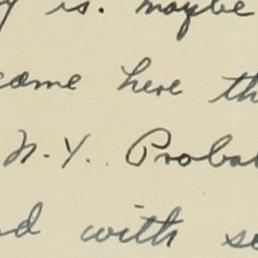 is. maybe
come here
N.Y. Probab
with se